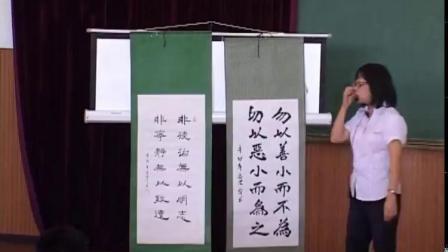 非淡泊無以明志
非寧靜無以致遠
勿以善小而不為
勿以惡小而為之